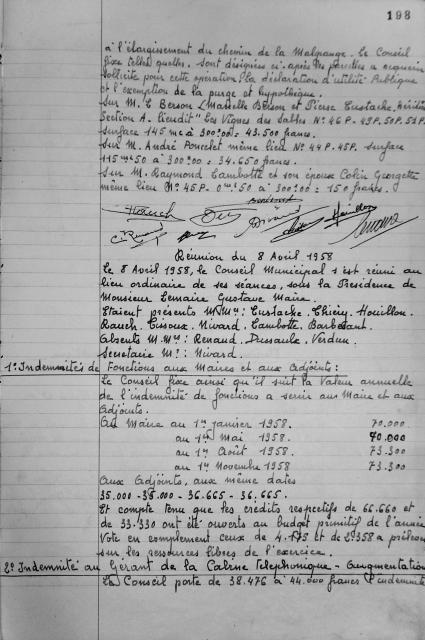 198
à l'élargissement du chemin de la Malgrange. Le Conseil
fixe telles quelles. sont désignées ci-après les parcelles à acquérir
sollicite pour cette opération la déclaration d'utilité Publique
et l'exemption de la purge et hypothèque.
Sur M. E Berson Marcelle Berson et Pierre Eustache,
Section A. lieudit "Les Vignes des Sables N° 46P - 49P. 50P. 51P.
surface 145 m² à 300.00 - 43.500 francs.
Sur M. André Poncelet même lieu N° 44P. 45P. surface
115 m² 50 à 300.00 : 34.650 francs.
Sur M. Raymond Lambotte et son épouse Colin Georgette
même lieu N° 45P - 0 m² 50 à 300.00 = 150 francs.
Réunion du 8 Avril 1958
Le 8 Avril 1958, le Conseil Municipal s'est réuni au
lieu ordinaire de ses séances, sous la Présidence de
Monsieur Lemaire Gustave Maire.
Etaient présents M.M.rs : Eustache. Thiéry. Houillon.
Rauch. Nivard. Lambotte.
Absents M.M.rs : Renaud. Verdun.
Secretaire M.r : Nivard.
1° Indemnités de Fonctions aux Maires et aux Adjoints :
Le Conseil fixe ainsi qu'il suit la Valeur annuelle
de l'indemnité de fonctions à servir aux Maire et aux
Adjoints.
Au Maire au 1er janvier 1958. 70.000
au 1er Mai 1958. 70.000
au 1er Août 1958. 73.300
au 1er Novembre 1958 73.300
Aux Adjoints, aux même dates
35.000 - 35.000 - 36.665 - 36.665.
Et compte tenu que les crédits respectifs de 66.660 et
de 33.330 ont été ouverts au budget primitif de l'année
Vote en complément ceux de 4.175 et de 2.358 à prélever
sur les ressources libres de l'exercice.
2° Indemnité au Gérant de la Cabine telephonique - Augmentation
Le Conseil porte de 38.476 à 44.000 francs l'indemnité